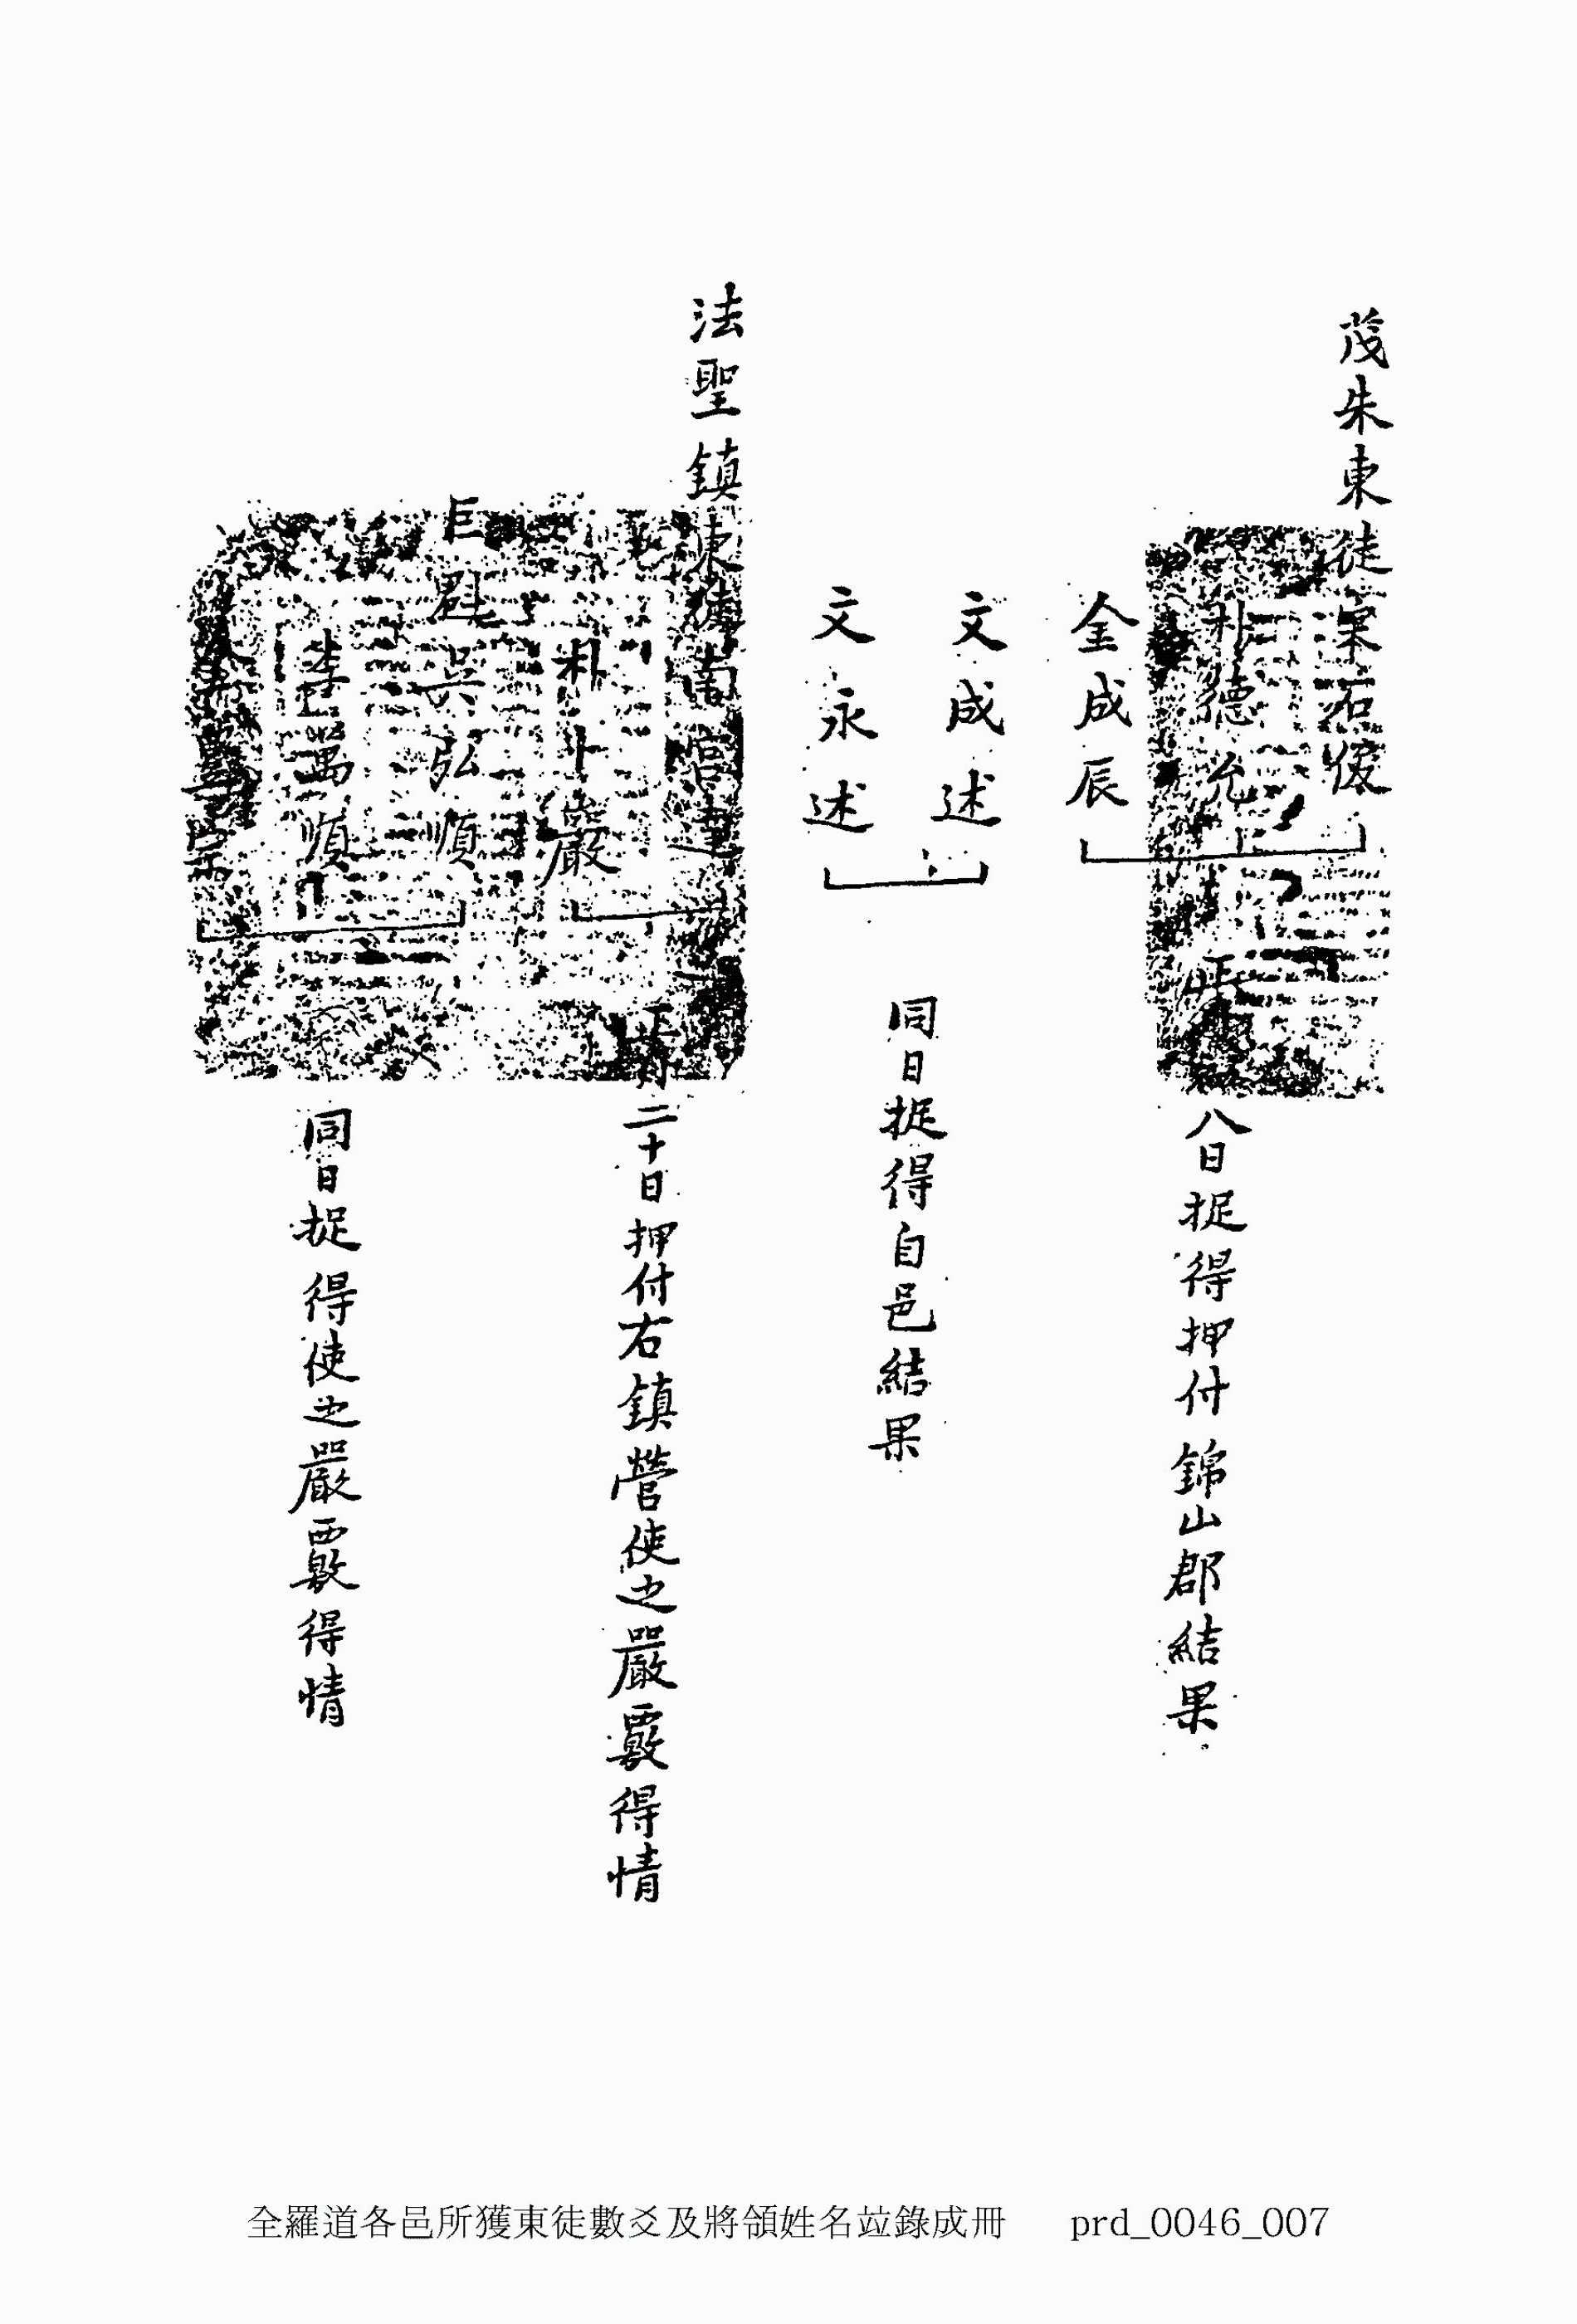 茂朱東徒梁石俊
朴德允
金成辰
正月初八日捉得押付錦山郡結果
文成述
文永述
同日捉得自邑結果
法聖鎮東徒南宮達
朴卜嚴
正月二十日押付右鎮營使之嚴覈得情
巨魁吳弘順
李萬順
同日捉得使之嚴覈得情
全羅道各邑所獲東徒數爻及將領姓名竝錄成冊 prd_0046_007